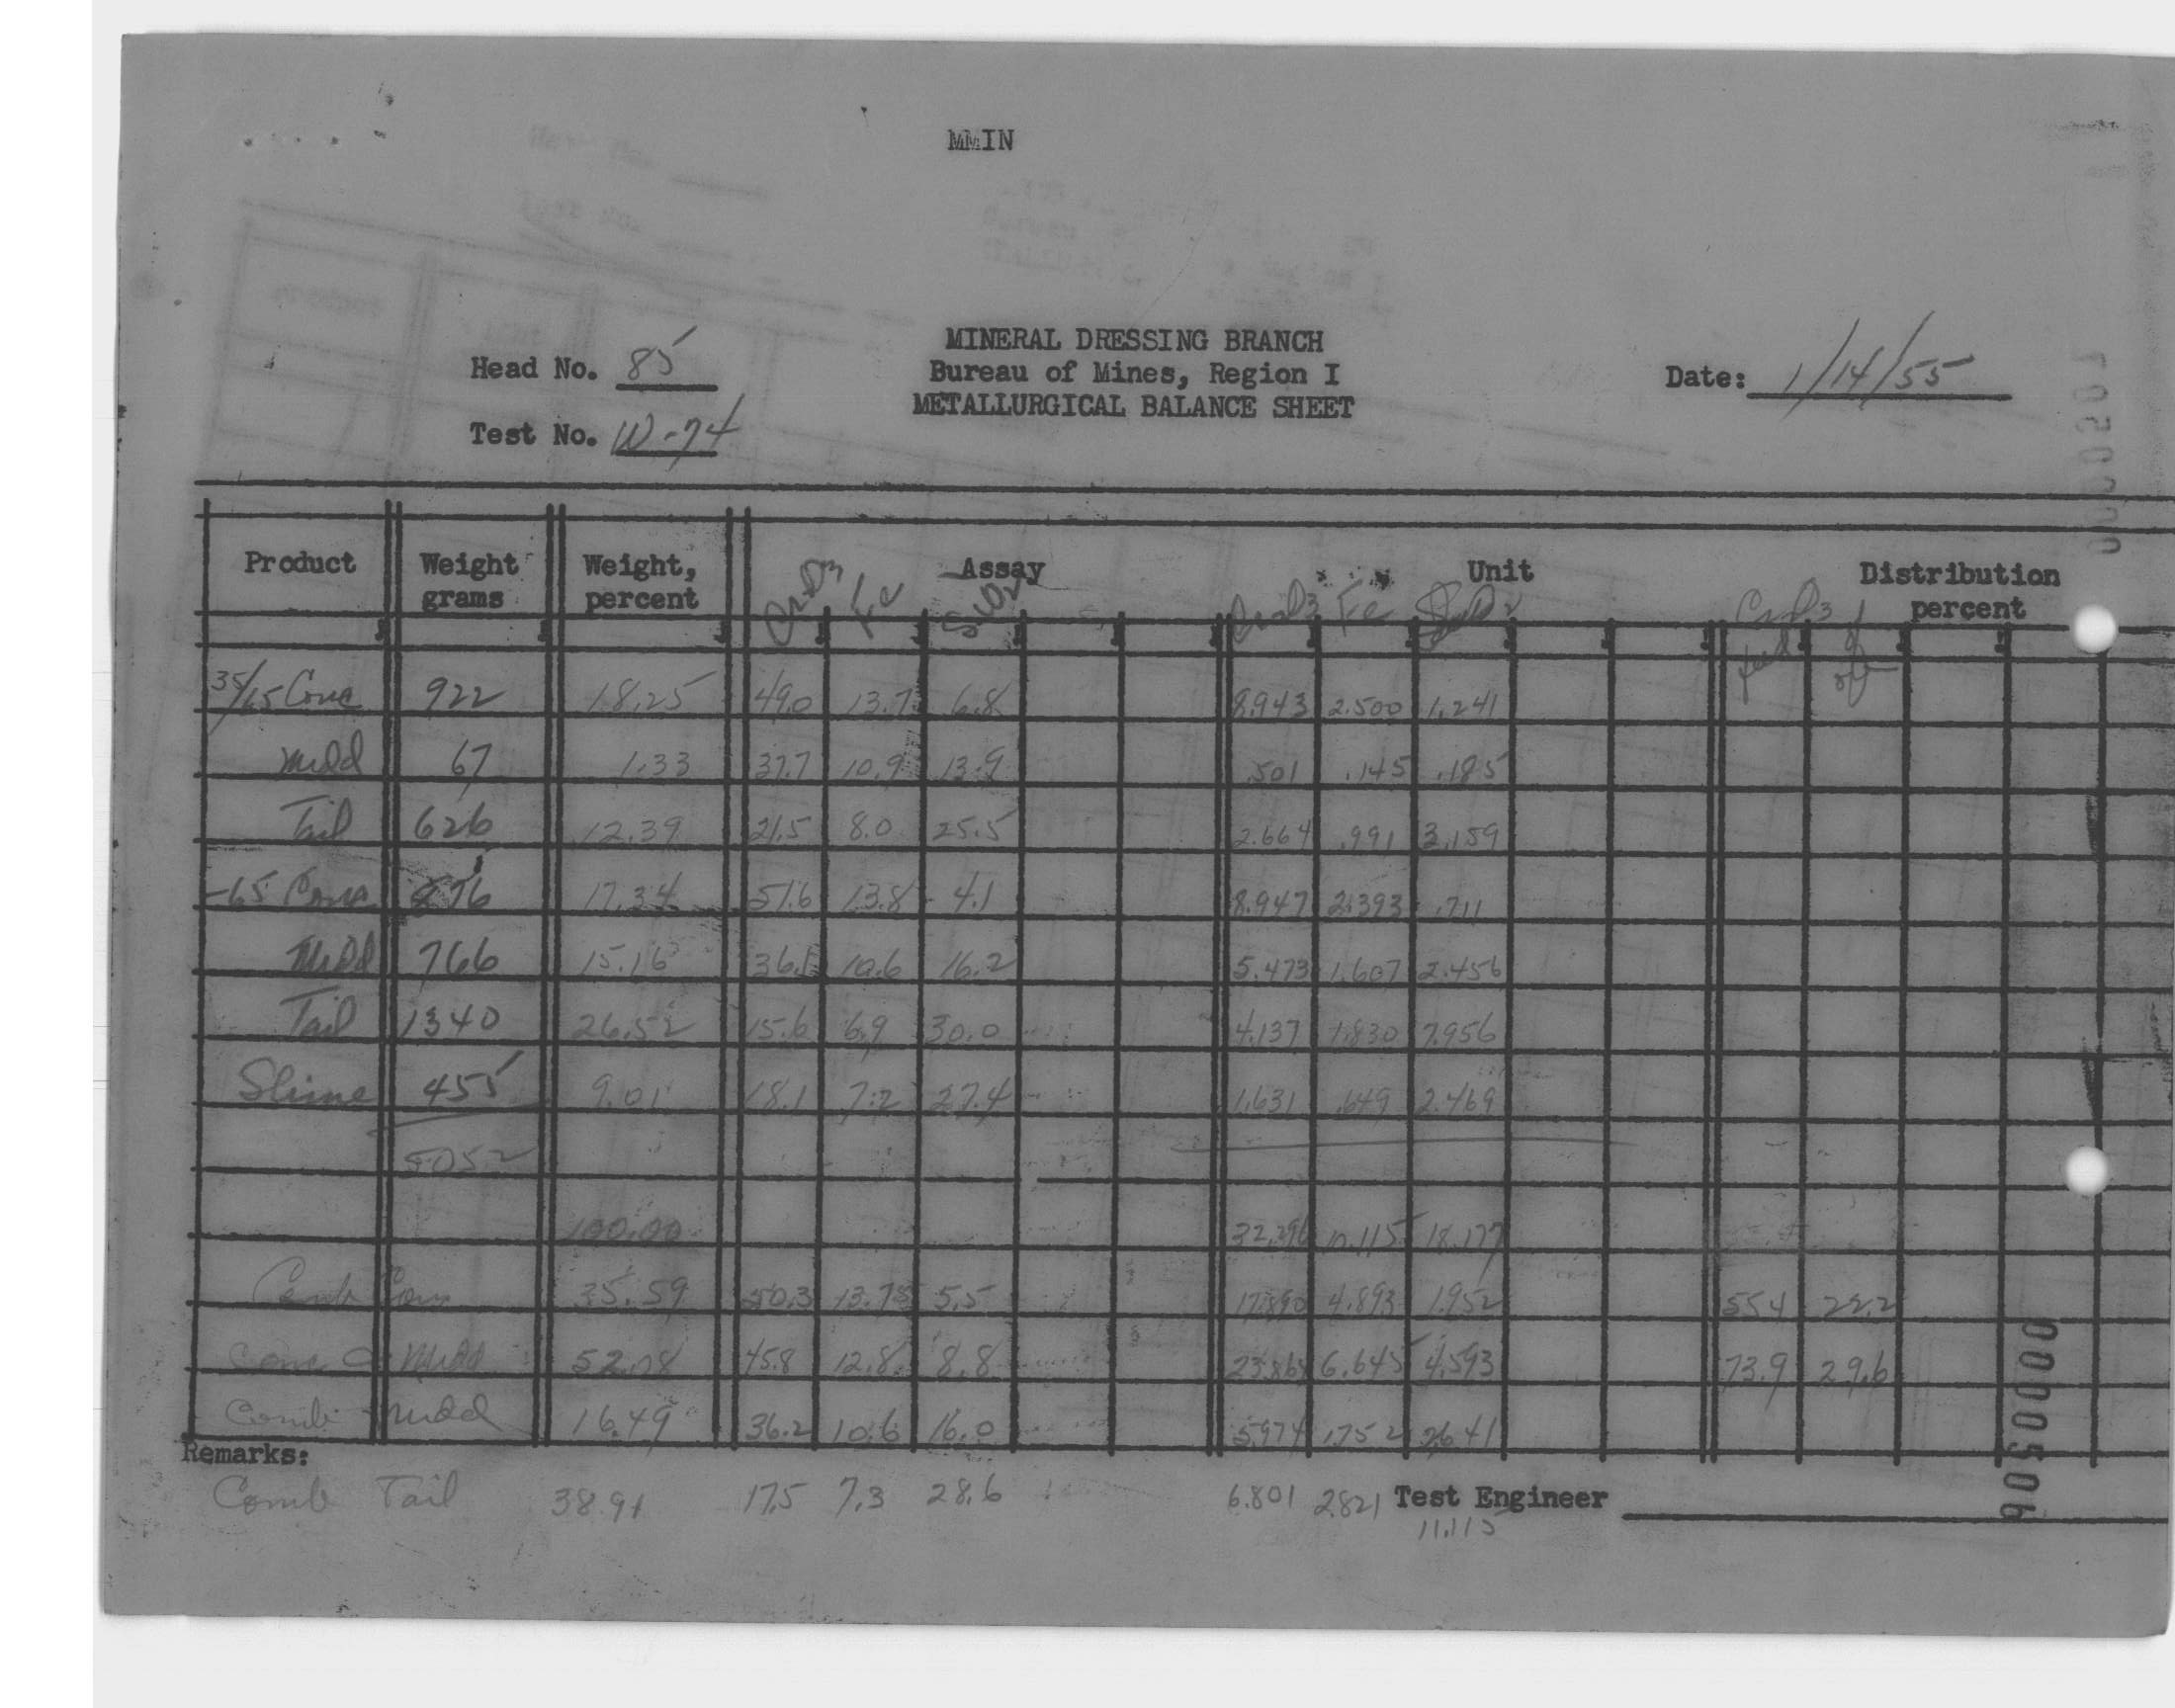 MMIN
MINERAL DRESSING BRANCH
Head No. 85 Bureau of Mines, Region I Date: 1/14/55
METALLURGICAL BALANCE SHEET
Test No. W-74
Product Weight grams Weight, percent Assay Unit Distribution percent
Cr2O3 Fe SiO2 Cr2O3 Fe SiO2 Cr2O3
35/65 Conc 922 18.25 49.0 13.7 6.8 8.943 2.500 1.241
Midd 67 1.33 37.7 10.9 13.9 .501 .145 .185
Tail 626 12.39 21.5 8.0 25.5 2.664 .991 3.159
-65 Conc 876 17.34 51.6 13.8 4.1 8.947 2.393 .711
Midd 766 15.16 36.1 10.6 16.2 5.473 1.607 2.456
Tail 1340 26.52 15.6 6.9 30.0 4.137 1.830 7.956
Slime 455 9.01 18.1 7.2 27.4 1.631 .649 2.469
5052
100.00 32.296 10.115 18.177
Comb Conc 35.59 50.3 13.75 5.5 17.890 4.893 1.952 55.4 22.2
Conc & Midd 52.08 45.8 12.8 8.8 23.864 6.645 4.593 73.9 29.6
Comb Midd 16.49 36.2 10.6 16.0 5.974 1.752 2.641
Remarks:
Comb Tail 38.91 17.5 7.3 28.6 6.801 2.821 Test Engineer
11.115
0000506